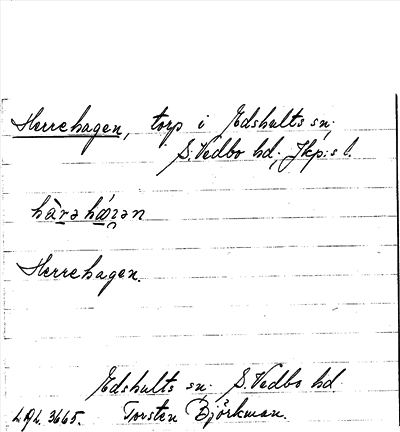 Herrehagen, torp i Edshults sn.
S. Vedbo hd, Jkp:s l.
hàrə hǿɼən
Herrehagen.
Edshults sn. S. Vedbo hd.
LAL. 3665. Torsten Björkman.